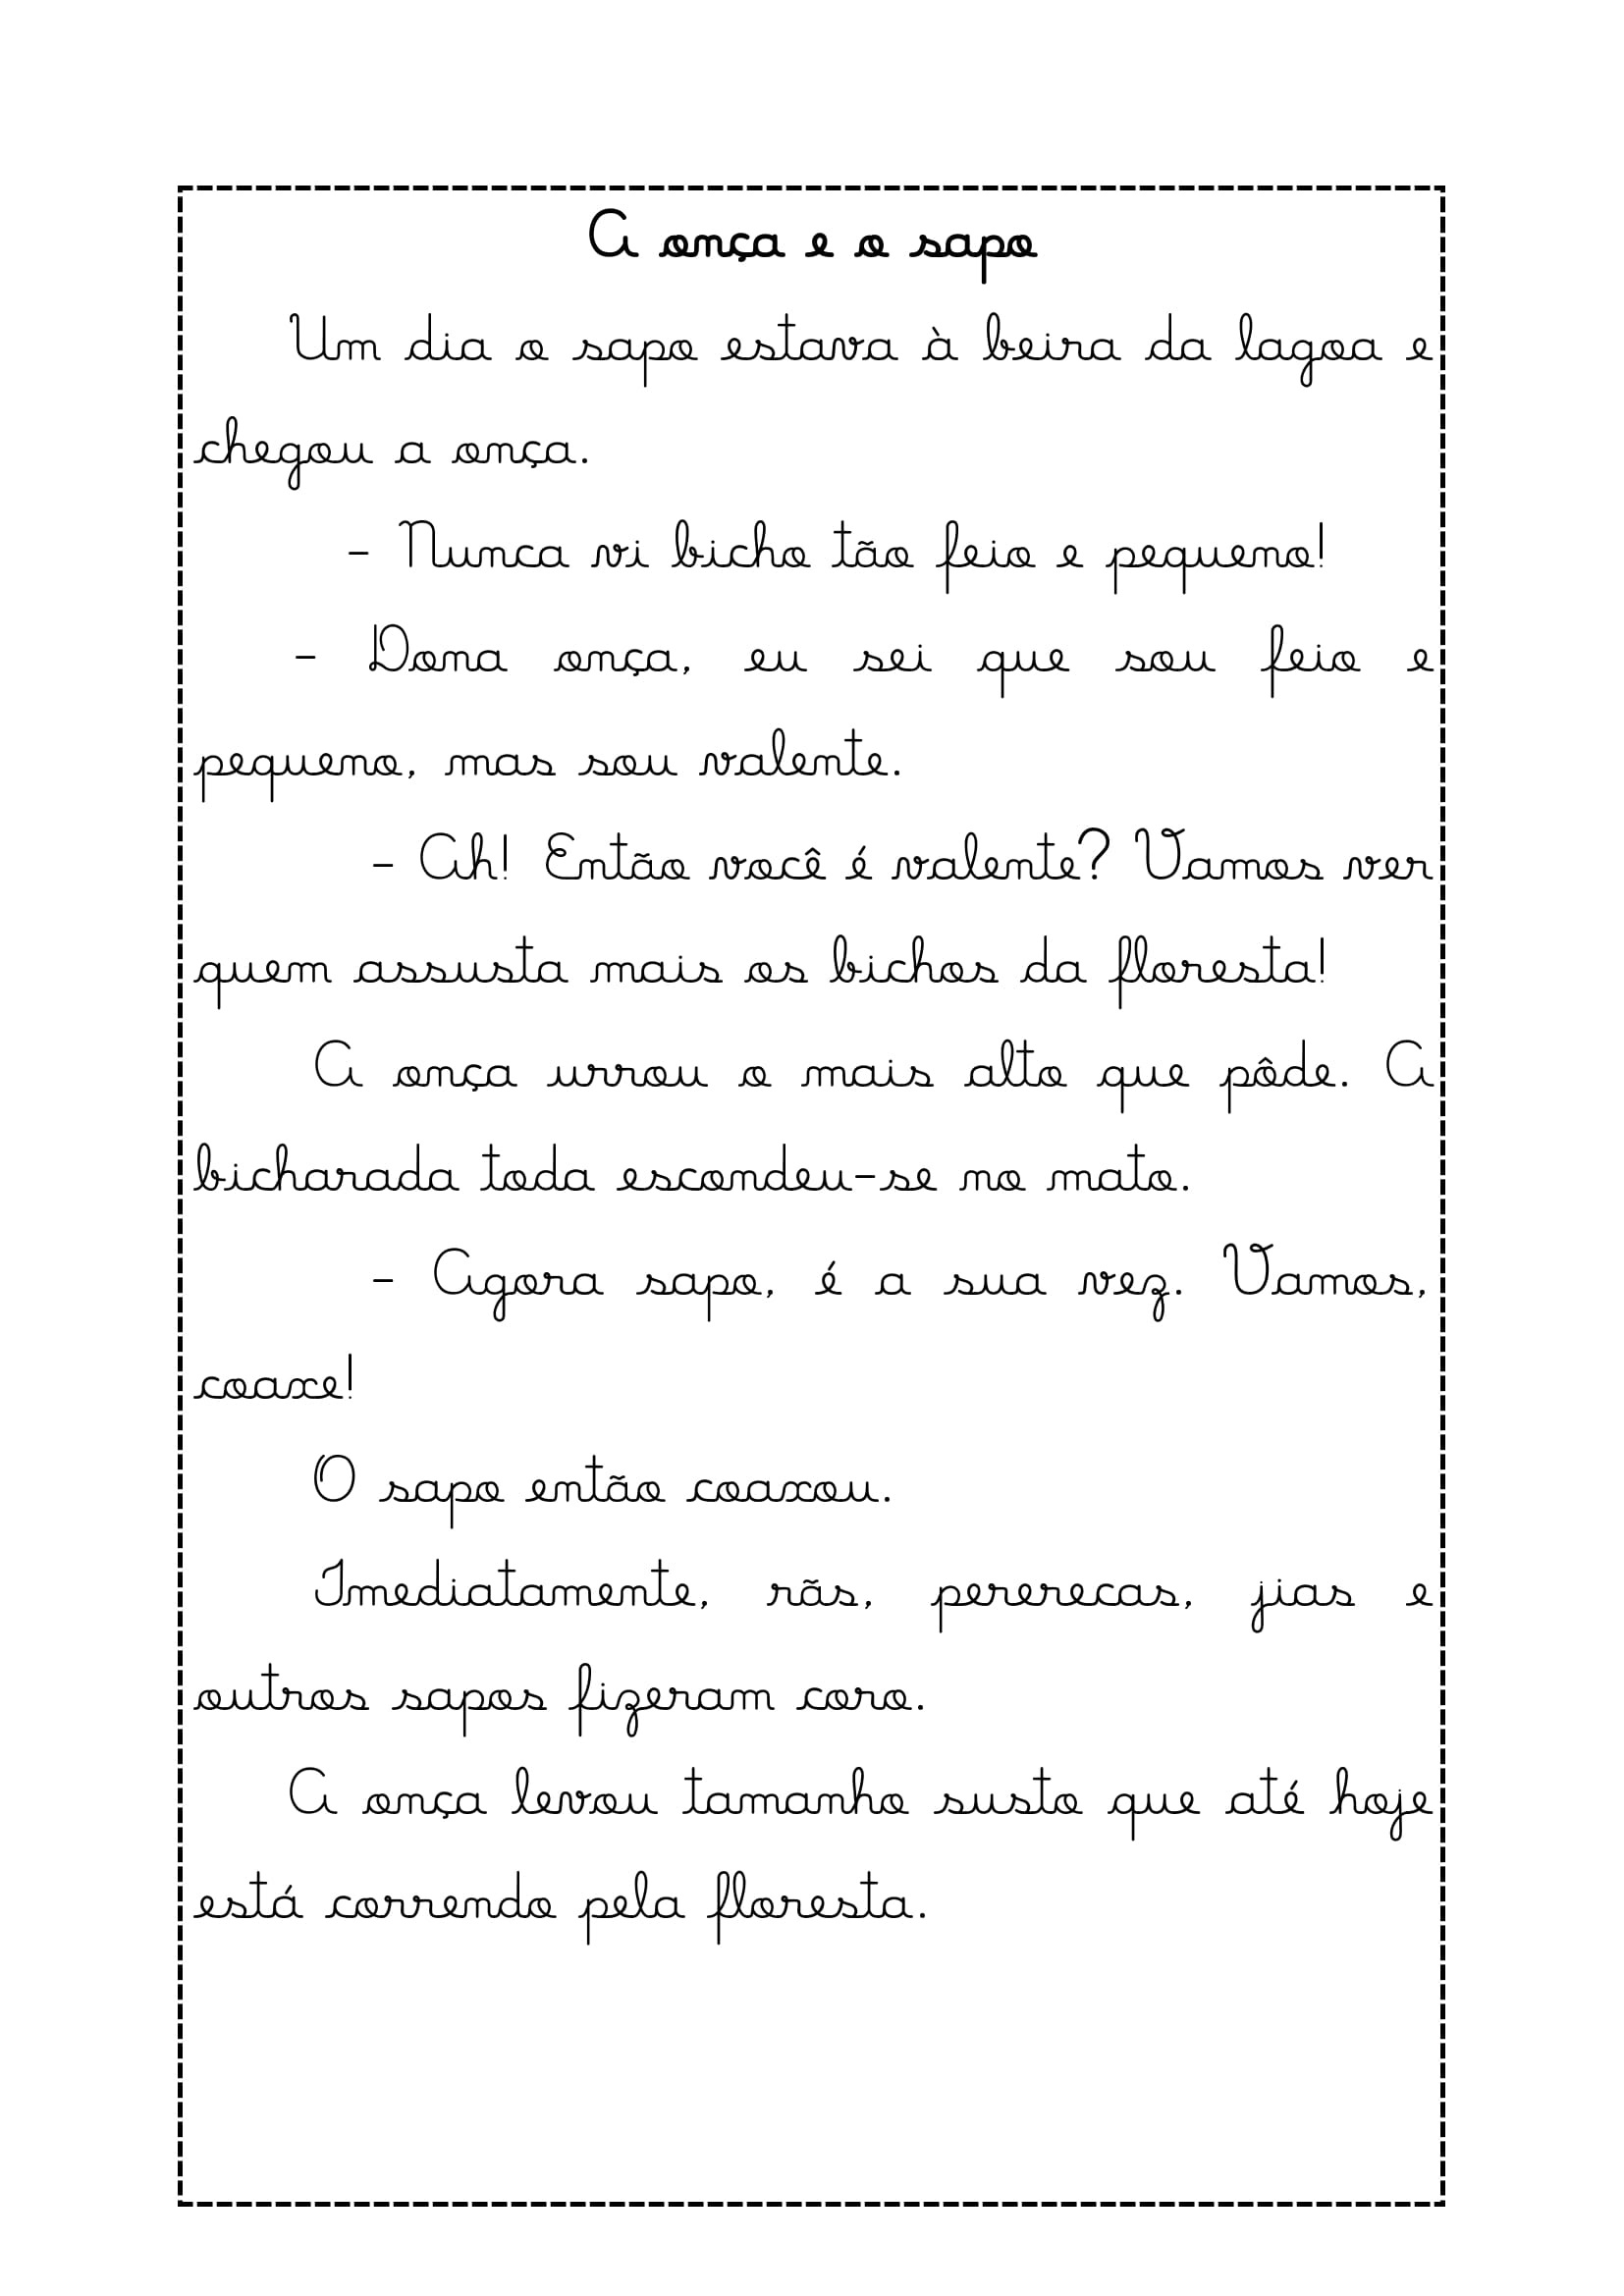 A onça e o sapo
Um dia o sapo estava à beira da lagoa e
chegou a onça.
- Nunca vi bicho tão feio e pequeno!
- Dona onça, eu sei que sou feio e
pequeno, mas sou valente.
- Ah! Então você é valente? Vamos ver
quem assusta mais os bichos da floresta!
A onça urrou o mais alto que pôde. A
bicharada toda escondeu-se no mato.
- Agora sapo, é a sua vez. Vamos,
coaxe!
O sapo então coaxou.
Imediatamente, rãs, pererecas, jias e
outros sapos fizeram coro.
A onça levou tamanho susto que até hoje
está correndo pela floresta.